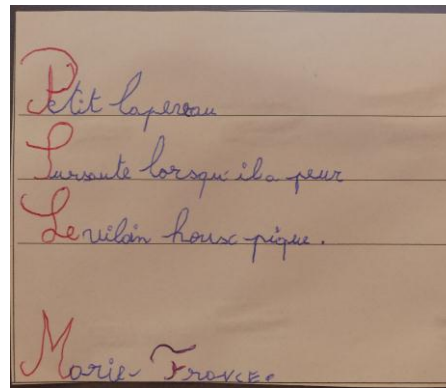 Petit lapereau
Sursaute lorsqu'il a peur
Le vilain houx pique.
Marie-France.